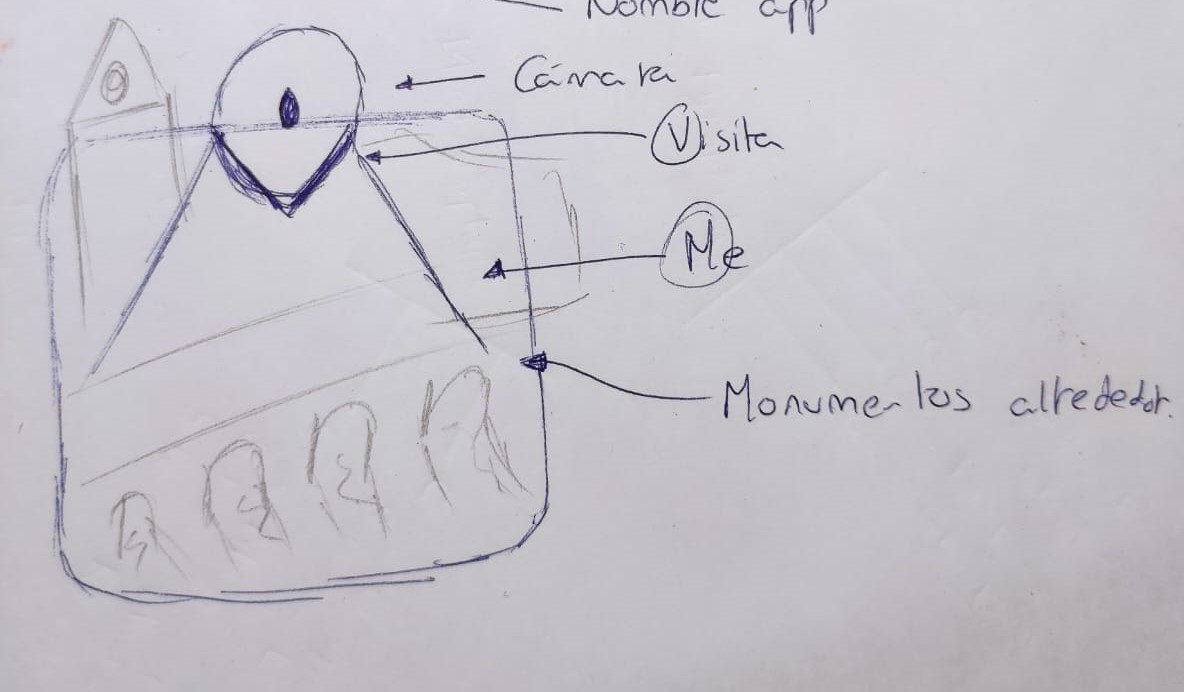 Nombre app
Cámara
Visita
Me
Monumentos alrededor.